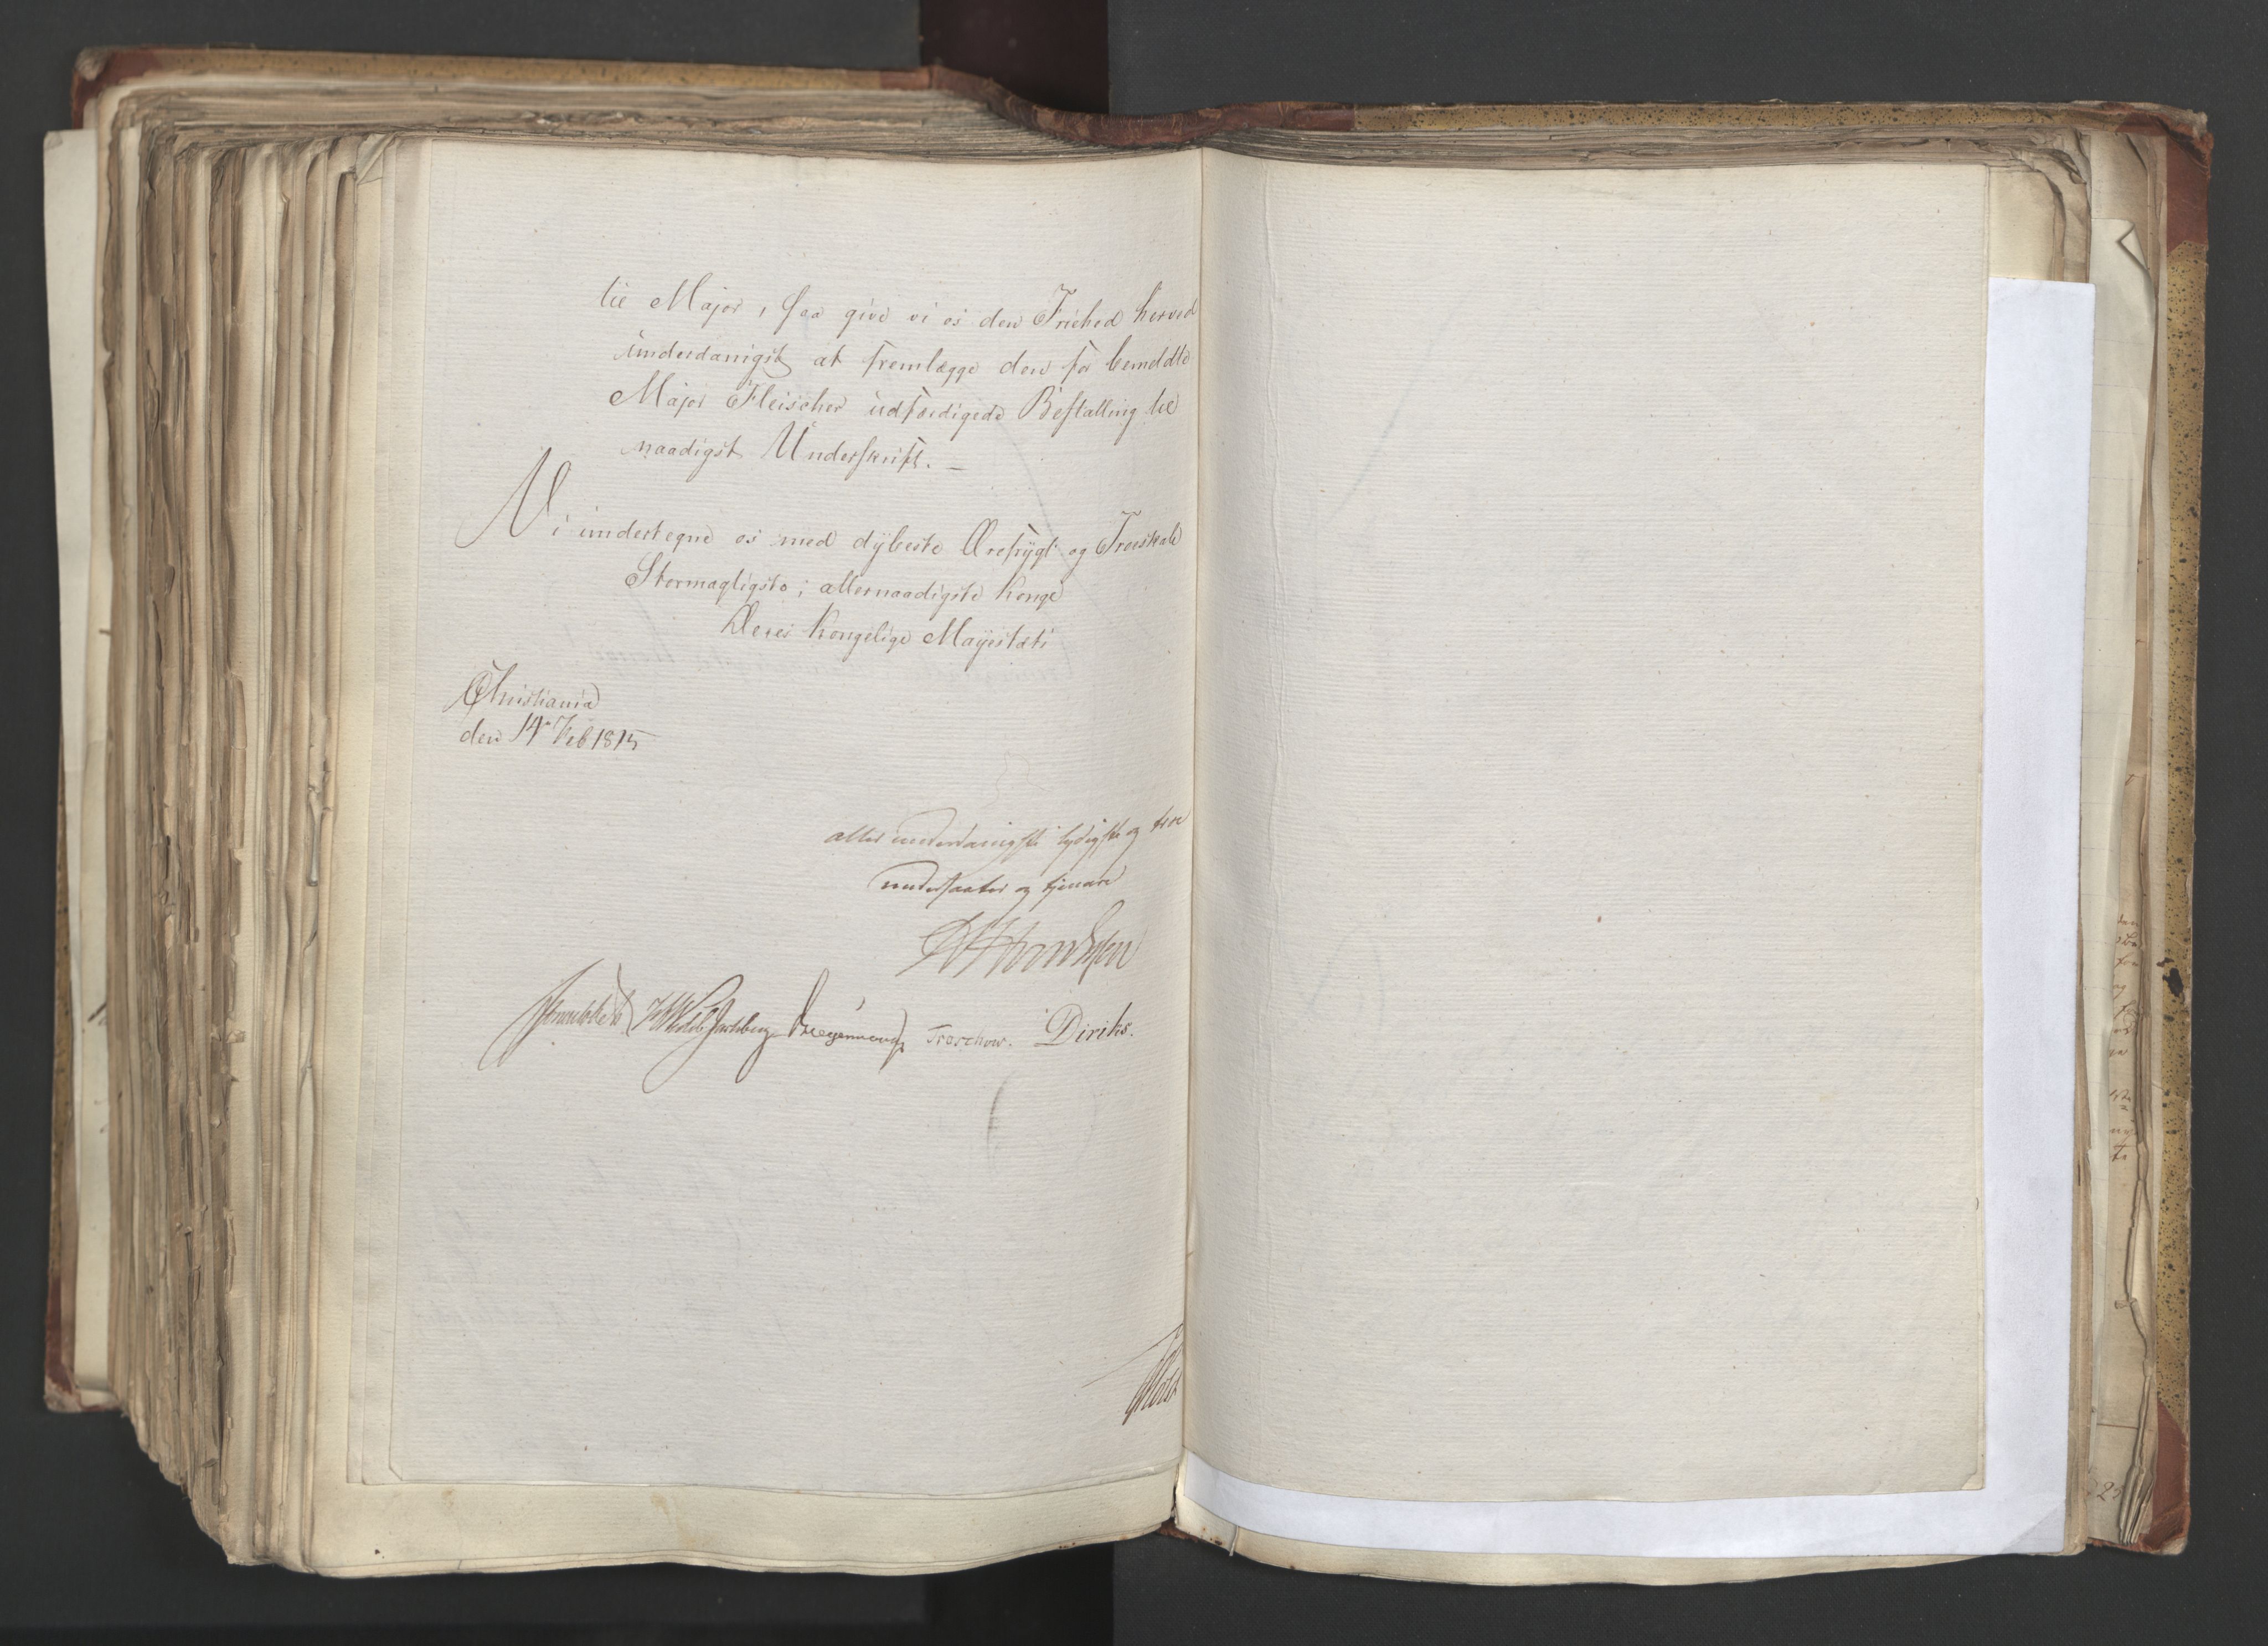 til Major, saa give vi os den Friehed herved
underdanigst at fremlægge den for bemeldte
Major Fleischer udfærdigede Bestalling til
naadigst Underskrift. —
Vi undertegne os med dybeste Ærefrygt og Troeskab
Stormægtigste, allernaadigste Konge
Deres Kongelige Mayestæts
Christiania
den 14 Feb 1815
aller underdanigste lydigste og troe
undersaatter og tjenere
Sommerhielm HWedel Jarlsberg Hegermann Treschow. Diriks.
Holst